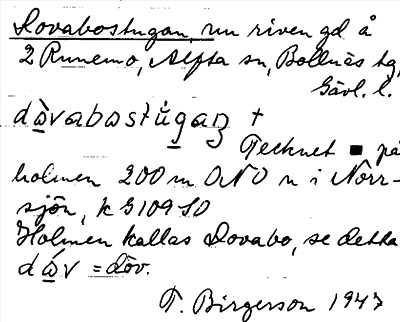 Dovabostugan, nu riven gd å
2 Runemo, Alfta sn, Bollnäs tg,
Gävl. l.
dåvabostùgaņ +
Tecknet ■ på
holmen 200 m ONO n i Norr-
sjön, k G109 SO
Holmen kallas Dovabo, se detta
dåv = döv.
T. Birgerson 1947